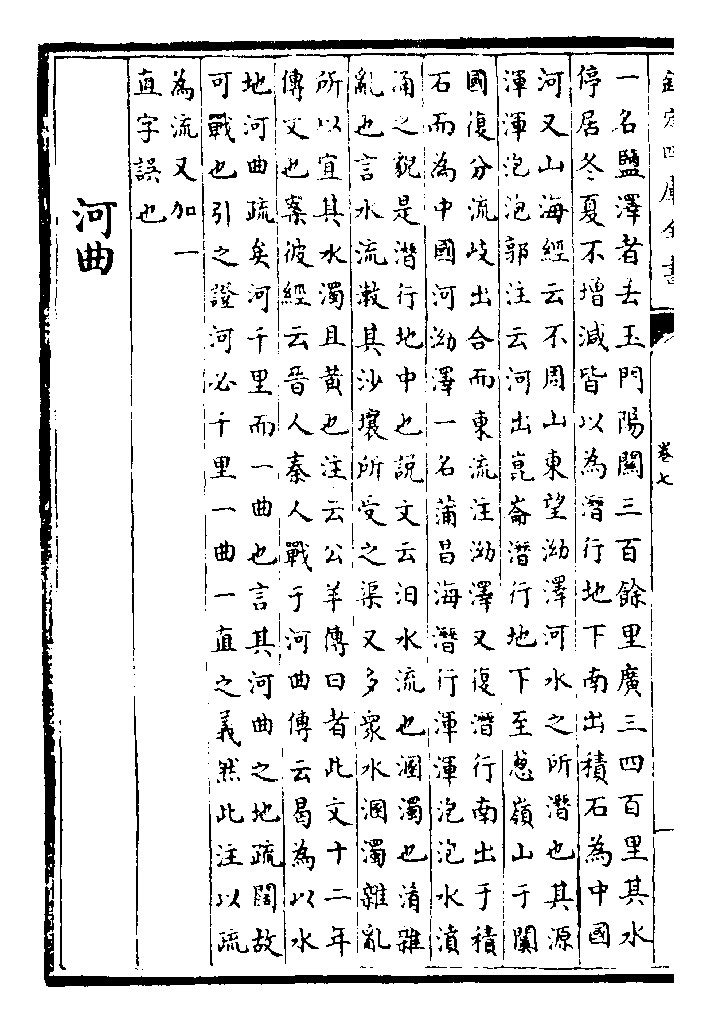 欽定四庫全書
卷七
一名鹽澤者去玉門陽關三百餘里廣三四百里其水
停居冬夏不增減皆以為潛行地下南出積石為中國
河又山海經云不周山東望泑澤河水之所潛也其源
渾渾泡泡郭注云河出崑崙潛行地下至葱嶺山于闐
國復分流岐出合而東流注泑澤又復潛行南出于積
石而為中國河泑澤一名蒲昌海潛行渾渾泡泡水濆
涌之貌是潛行地中也說文云汩水流也溷濁也淆雜
亂也言水流漱其沙壤所受之渠又多衆水溷濁雜亂
所以宜其水濁且黃也注云公羊傳曰者此文十二年
傳文也案彼經云晉人秦人戰于河曲傳云曷為以水
地河曲疏矣河千里而一曲也言其河曲之地疏闊故
可戰也引之證河必千里一曲一直之義然此注以疏
為流又加一
直字誤也
河曲